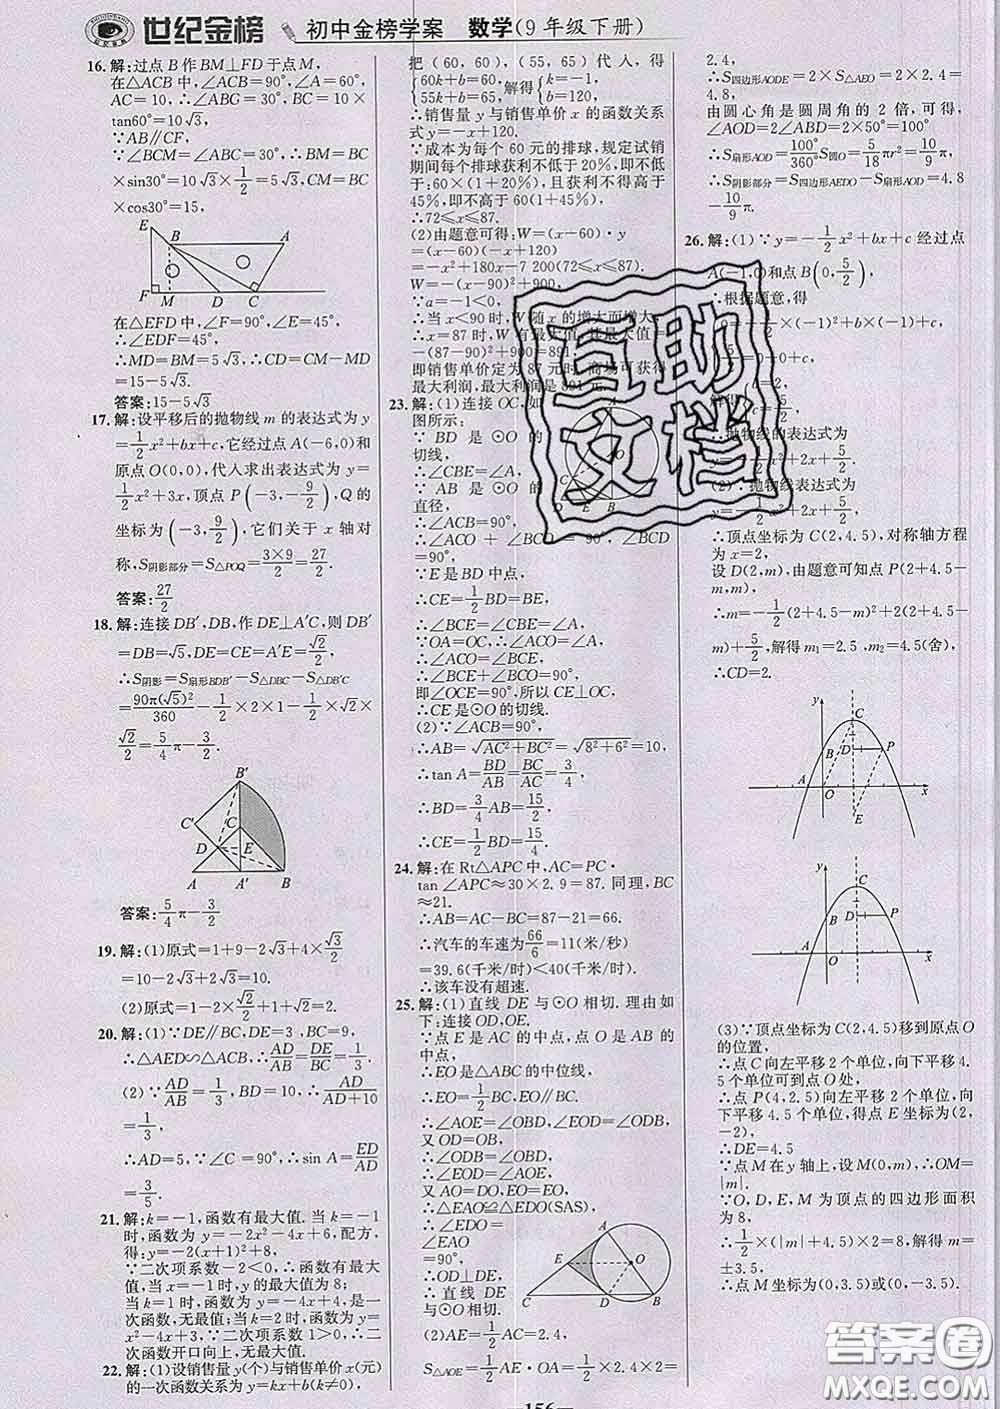 世纪金榜 初中金榜学案 数学(9年级下册)
16.解:过点B作BM⊥FD于点M,
在△ACB中,∠ACB=90°,∠A=60°,
AC=10,∴∠ABG=30°,BC=10×
tan60°=10√3,
∵AB∥CF,
∴∠BCM=∠ABC=30°,∴BM=BC
×sin30°=10√3×1/2=5√3,CM=BC
×cos30°=15,
E B A
F M D C
在△EFD中,∠F=90°,∠E=45°,
∴∠EDF=45°,
∴MD=BM=5√3.∴CD=CM-MD
=15-5√3.
答案:15-5√3
17.解:设平移后的抛物线m的表达式为y
=1/2x²+bx+c,它经过点A(-6,0)和
原点O(0,0),代入求出表达式为y=
1/2x²+3x,顶点P(-3,-9/2),Q的
坐标为(-3,9/2),它们关于x轴对
称,S阴影部分=S△POQ=3×9/2=27/2.
答案:27/2
18.解:连接DB′,DB,作DE⊥A′C,则DB′
=DB=√5,DE=CE=√2/2,
∴S阴影=S扇形BDB′-S△DBC-S△DB′C
=90π(√5)²/360-1/2×2×1-1/2×√2×
√2/2=5/4π-3/2.
B′
C′ C
D E
A A′ B
答案:5/4π-3/2
19.解:(1)原式=1+9-2√3+4×√3/2
=10-2√3+2√3=10.
(2)原式=1-2×√2/2+1+√2=2.
20.解:(1)∵DE∥BC,DE=3,BC=9,
∴△AED∽△ACB,∴AD/AB=DE/BC=1/3.
(2)∵AD/AB=1/3,BD=10,∴AD/AD+10=
1/3,
∴AD=5,∵∠C=90°,∴sin A=ED/AD
=3/5.
21.解:k=-1,函数有最大值.当k=-1
时,函数为y=-2x²-4x+6,配方,
得:y=-2(x+1)²+8,
∵二次项系数-2<0,∴函数有最大值
当x=-1时,y的最大值为8;
当k=1时,函数为y=-4x+4,是一
次函数,无最值;当k=2时,函数为y=
x²-4x+3,∵二次项系数1>0,∴二次
函数开口向上,无最大值.
22.解:(1)设销售量y(个)与销售单价x(元)
的一次函数关系为y=kx+b(k≠0),
把(60,60),(55,65)代入,得
{60k+b=60, 55k+b=65, 解得{k=-1, b=120,
∴销售量y与销售单价x的函数关系
式y=-x+120.
∵成本为每个60元的排球,规定试销
期间每个排球获利不低于20%,即不低
于:60×(1+20%),且获利不得高于
45%,即不高于60(1+45%),
∴72≤x≤87.
(2)由题意可得:W=(x-60)·y
=(x-60)(-x+120)
=-x²+180x-7 200(72≤x≤87).
W=-(x-90)²+900,
∵a=-1<0,
∴当x<90时,W随x的增大而增大,
∴x=87时,W有最大值,其最大值=
-(87-90)²+900=891
即销售单价定为87元时,商场可获得
最大利润,最大利润是891元.
23.解:(1)连接OC,如
图所示:
∵BD是⊙O的
切线,
∴∠CBE=∠A,
∵AB是⊙O的
直径,
∴∠ACB=90°,
∴∠ACO+∠BCO=90°,∠BCD
=90°,
∵E是BD中点,
∴CE=1/2BD=BE,
∴∠BCE=∠CBE=∠A,
∵OA=OC,∴∠ACO=∠A,
∴∠ACO=∠BCE,
∴∠BCE+∠BCO=90°,
即∠OCE=90°,所以CE⊥OC,
∴CE是⊙O的切线.
(2)∵∠ACB=90°,
∴AB=√AC²+BC²=√8²+6²=10,
∴tan A=BD/AB=BC/AC=3/4,
∴BD=3/4AB=15/2,
∴CE=1/2BD=15/4.
24.解:在Rt△APC中,AC=PC·
tan∠APC≈30×2.9=87.同理,BC
≈21.
∴AB=AC-BC=87-21=66.
∴汽车的车速为66/6=11(米/秒)
=39.6(千米/时)<40(千米/时).
∴该车没有超速.
25.解:(1)直线DE与⊙O相切.理由如
下:连接OD,OE.
∵点E是AC的中点,点O是AB的
中点,
∴EO是△ABC的中位线,
∴EO=1/2BC,EO∥BC.
∴∠AOE=∠OBD,∠EOD=∠ODB,
又OD=OB,
∴∠ODB=∠OBD,
∴∠EOD=∠AOE,
又AO=DO,EO=EO,
∴△EAO≌△EDO(SAS),
∴∠EDO=
∠EAO
=90°,
∴OD⊥DE,
∴直线DE
与⊙O相切.
A
E O
C D B
(2)AE=1/2AC=2.4,
S△AOE=1/2AE·OA=1/2×2.4×2=
2.4,
∴S四边形AODE=2×S△AEO=2×2.4=
4.8,
由圆心角是圆周角的2倍,可得,
∠AOD=2∠ABD=2×50°=100°
∴S扇形AOD=100°/360°S圆O=5/18πr²=10/9π,
∴S阴影部分=S四边形AEDO-S扇形AOD=4.8-
10/9π.
26.解:(1)∵y=-1/2x²+bx+c经过点
A(-1,0)和点B(0,5/2),
∴根据题意,得
∴抛物线的表达式为
y=-1/2x²+2x+5/2.
(2)∵抛物线表达式为
y=-1/2x²+2x+5/2,
∴顶点坐标为C(2,4.5),对称轴方程
为x=2,
设D(2,m),由题意可知点P(2+4.5-
m,m),
∴m=-1/2(2+4.5-m)²+2(2+4.5-
m)+5/2,解得m₁=2.5,m₂=4.5(舍),
∴CD=2.
y C
B D P
A O x
E
y C
B D P
A O x
(3)∵顶点坐标为C(2,4.5)移到原点O
的位置,
∴点C向左平移2个单位,向下平移4.
5个单位可到点O处,
∴点P(4,2.5)向左平移2个单位,向
下平移4.5个单位,得点E坐标为(2,
-2),
∴DE=4.5
∵点M在y轴上,设M(0,m),∴OM=
|m|.
∵O,D,E,M为顶点的四边形面积
为8,
∴1/2×(|m|+4.5)×2=8,解得m=
±3.5,
∴点M坐标为(0,3.5)或(0,-3.5).
互助
文档
答案圈
MXQE.COM
156